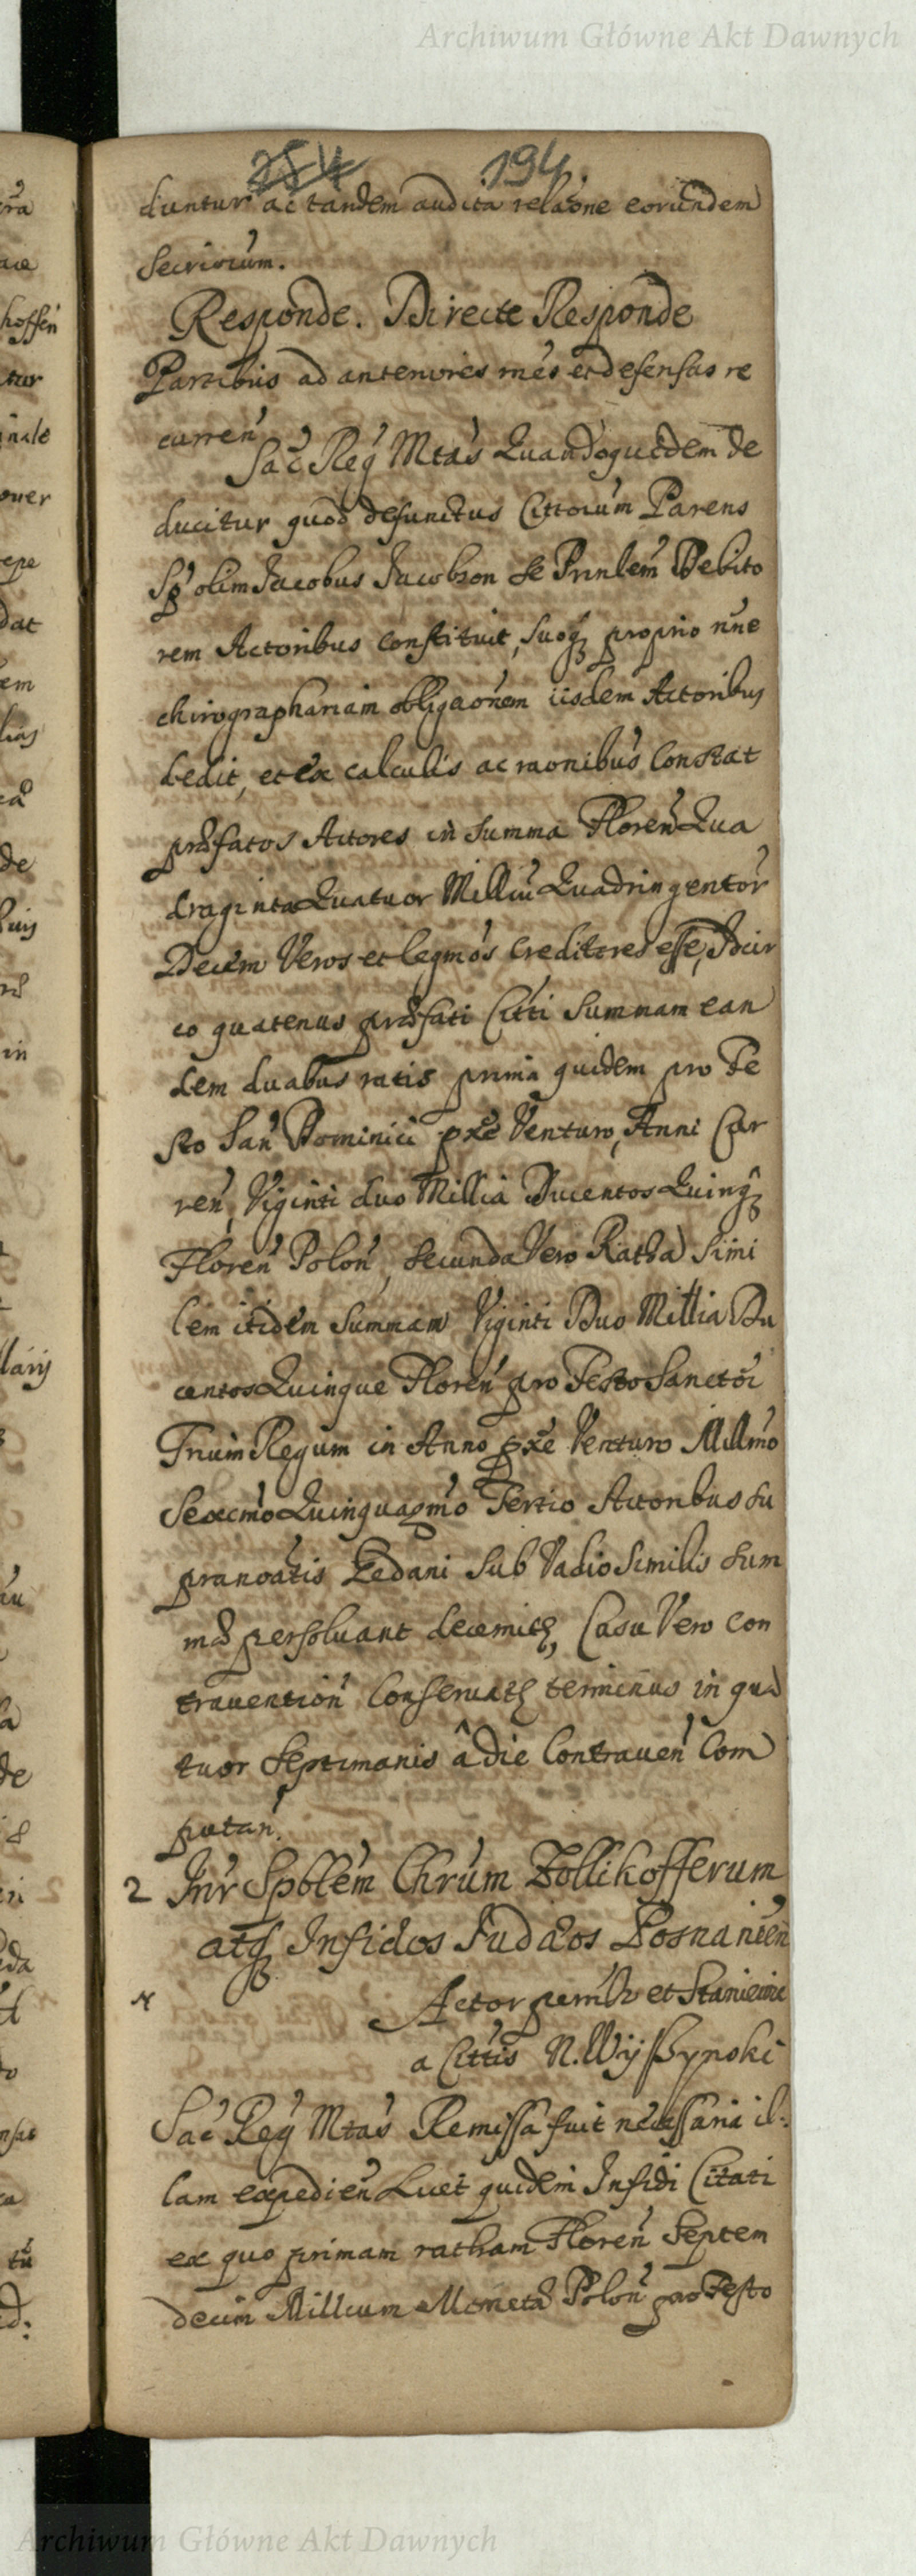 Archiwum Główne Akt Dawnych
254 194.
duntur ac tandem audita relãone eorundem
Secriorum.
Responde. Directe Responde
Partibus ad anteriores mes et defensas re
curren
Sac Reg Mtas Quandoquidem de
ducitur quod defunctus Cittorum Parens
Sp olim Jacobus Jacobzon se Prinlem Debito
rem Actoribus constituit, suoq proprio nne
chirographariam obligaonem iisdem Actoribus
dedit, et ex calculis ac raonibus Constat
præfatos Actores in Summa Floren Qua
draginta Quatuor Milliu Quadringentor
Decem Veros et legmos Creditores esse, Idcir
co quatenus præfati Citti Summam ean
dem duabus ratis prima quidem pro Fe
sto San Dominici pxe Venturo, Anni Cur
ren, Viginti duo Millia Ducentos Quinq
Floren Polon, Secunda Vero Ratha Simi
lem itidem Summam Viginti Duo Millia Du
centos Quinque Floren pro Festo Sanctor
Trium Regum in Anno pxe Venturo Millmo
Sexcmo Quinquagmo Tertio Actoribus su
pranoatis Gedani Sub Vadio Similis Sum
mæ persolvant decernit, Casu Vero con
travention Conservat terminus in qua
tuor Septimanis â die Contraven Com
putan.
2 Inr Spblem Chrum Zollikofferum
atq Infidos Judæos Posnanien
Actor
a Cittis N. Wyszynski
Sac Reg Mtas Remissa fuit necessaria il:
lam expedien Luet quidem Infidi Citati
ex quo primam ratham Floren Septem
decim Millium Moneta Polon pro Festo
Archiwum Główne Akt Dawnych